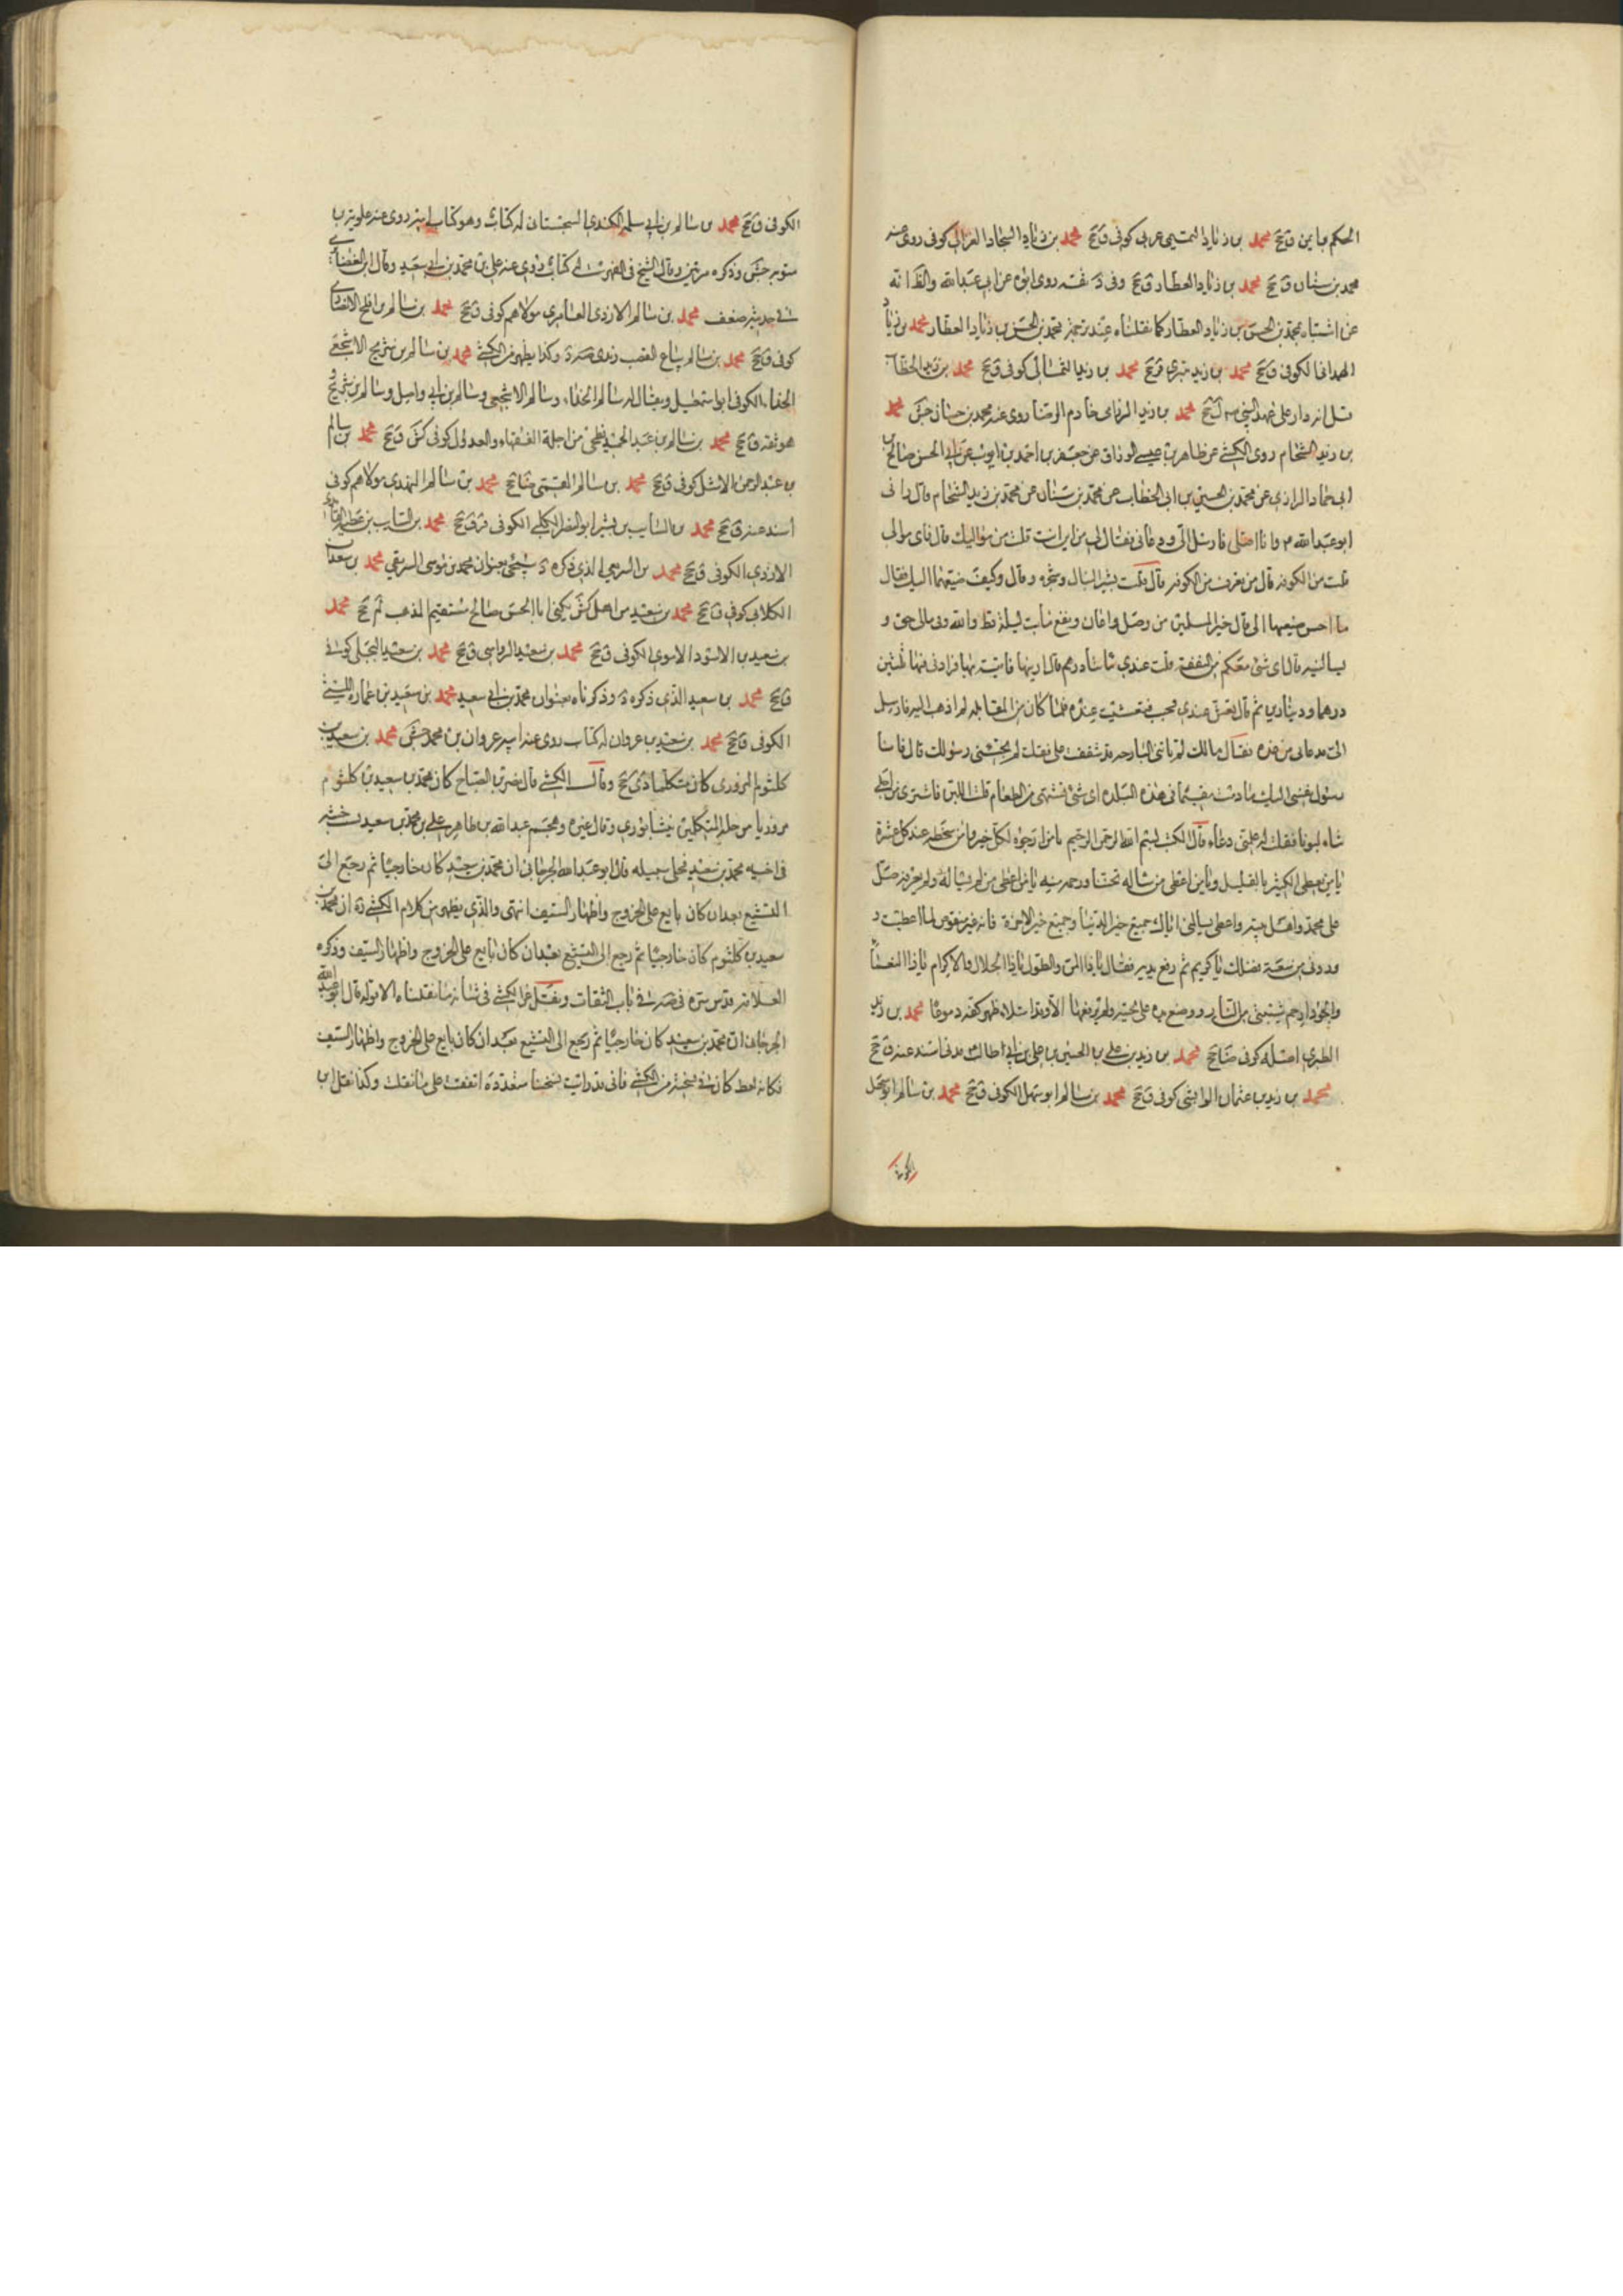 الحكم باين ق جخ محمد بن زياد التميمى عربى كوفى ق جخ محمد بن زياد السجاد الغزال كوفى روى عنه
محمد بن سنان ق جخ محمد بن زياد العطار ق جخ وفى د ثقه روى ابوه عن ابى عبد الله والظ انه
عن اشتباه محمد بن الحسن بن زياد العطار كما نقلناه عند ترجمة محمد بن الحسن بن زياد العطار محمد بن زياد
الهمدانى الكوفى ق جخ محمد بن زيد بترى ق جخ محمد بن زيد الثمالى كوفى ق جخ محمد بن زيد الخطاب
محمد بن زيد الرزامى خادم الرضا روى عنه محمد بن حسان جش محمد
بن زيد الشحام روى الكشى عن طاهر بن عيسى الوراق عن جعفر بن احمد بن ايوب عن ابى الحسن صالح بن
ابى حماد الرازى عن محمد بن الحسين بن ابى الخطاب عن محمد بن سنان عن محمد بن زيد الشحام قال رانى
ابو عبد الله ع وانا اصلى فارسل الى ودعانى فقال لى من اين انت قلت من مواليك قال فاى موالى
قلت من الكوفه قال من تعرف من الكوفه قال قلت بشير النبال وشجره وقال وكيف صنيعتهما اليك فقال
ما احسن صنيعهما الى قال خير المسلمين من وصل واعان ونفع ما بت ليلة قط ولله فى مالى حق
يسألنيه قال اى شئ معكم من النفقة قلت عندى مائتا درهم قال ارنيها فاتيته بها فزادنى فيها ثلثين
درهما ودينارين ثم قال تعش عندى فجئت فتعشيت عنده فلما كان من القابله لم اذهب اليه فارسل
الى فدعانى من غده فقال مالك لم تاتنى البارحه قد شفقت على فقلت لم يجئنى رسولك قال فانا
رسول نفسى اليك مادمت مقيما فى هذه البلده اى شئ تشتهى من الطعام قلت اللبن فاشترى من اجلى
شاة لبونا فقلت له علمنى دعاء قال اكتب بسم الله الرحمن الرحيم يا من ارجوه لكل خير وامن سخطه عند كل عثرة
يا من يعطى الكثير بالقليل ويا من اعطى من ساله تحننا ورحمه منه يا من اعطى من لم يساله ولم يعرفه صل
على محمد واهل بيته واعطنى بمسألتى اياك جميع خير الدنيا وجميع خير الاخرة فانه غير منقوص لما اعطيت و
وزدنى من سعة فضلك يا كريم ثم رفع يديه فقال يا ذا المن والطول يا ذا الجلال والاكرام يا ذا النعماء
والجود ارحم شيبتى من النار ووضع يده على لحيته ولم يرفعها الا وقد امتلا ظهر كفه دموعا محمد بن زيد
الطبرى اصله كوفى ضا جخ محمد بن زيد بن على بن الحسين بن على بن ابى طالب مدنى اسند عنه ق جخ
محمد بن زيد بن عثمان الوابشى كوفى ق جخ محمد بن سالم ابو سهل الكوفى ق جخ محمد بن سالم ابو سهل
الكوفى
الكوفى ق جخ محمد بن سالم بن ابى سلمه الكندى السجستانى له كتاب وهو كتاب ابيه روى عنه علويه بن
متويه جش وذكره مرتين وقال الشيخ فى الفهرست له كتاب روى عنه على بن محمد بن ابى سعيد وقال ابن الغضائرى
فى حديثه ضعف محمد بن سالم الازدى العامرى مولاهم كوفى ق جخ محمد بن سالم بن افلح الانصارى
كوفى ق جخ محمد بن سالم بياع القصب وكذا يظهر من الكشى محمد بن سالم بن شريح الاشجعى
الحذاء الكوفى ابو اسمعيل ويقال له سالم الحذاء وسالم الاشجعى وسالم بن ابى واصل وسالم بن شريح
هو ثقه ق جخ محمد بن سالم بن عبد الحميد فطحى من اجلة الفقهاء والعدول كوفى كش ق جخ محمد بن سالم
بن عبد الرحمن الاشل كوفى ق جخ محمد بن سالم القمى ضا جخ محمد بن سالم النهدى مولاهم كوفى
اسند عنه ق جخ محمد بن السائب بن بشر ابو النضر الكلبى الكوفى قر ق جخ محمد بن السائب بن عطية
الازدى الكوفى ق جخ محمد بن السريعى الذى ذكره د سيجئ بعنوان محمد بن موسى السريعى محمد بن سعدان
الكلابى كوفى ق جخ محمد بن سعيد من اهل كش يكنى ابا الحسن صالح مستقيم المذهب لم جخ محمد
بن سعيد بن الاسود الاسدى الكوفى ق جخ محمد بن سعيد الرواسى ق جخ محمد بن سعيد البجلى كوفى
ق جخ محمد بن سعيد الذى ذكره د وذكرناه بعنوان محمد بن ابى سعيد محمد بن سعيد بن عماره الليثى
الكوفى ق جخ محمد بن سعيد بن غزوان له كتاب روى عنه ابنه غزوان بن محمد جش محمد بن سعيد بن
كلثوم المروزى كان متكلما دى جخ وقال الكشى قال نصر بن الصباح كان محمد بن سعيد بن كلثوم
مروزيا من جلة المتكلمين بنيشابورى وقال غيره وهجم عبد الله بن طاهر على محمد بن سعيد بسبب خبثه
فى اخيه محمد بن سعيد فخلى سبيله قال ابو عبد الله الجرجانى ان محمد بن سعيد كان خارجيا ثم رجع الى
التشيع بعد ان كان بايع على الخروج واظهار السيف انتهى والذى يظهر من كلام الكشى ره ان محمد بن
سعيد بن كلثوم كان خارجيا ثم رجع الى التشيع بعد ان كان بايع على الخروج واظهار السيف وذكره
العلامه قدس سره فى صه فى باب الثقات ونقل عن الكشى فى شانه ما نقلناه الا قوله قال ابو عبد الله
الجرجانى ان محمد بن سعيد كان خارجيا ثم رجع الى التشيع بعد ان كان بايع على الخروج واظهار السيف
فكانه سقط كان فى نسخته من الكشى فانى قد رايت نسخا متعددة اتفقت على ما نقلت وكذا نقل ابن